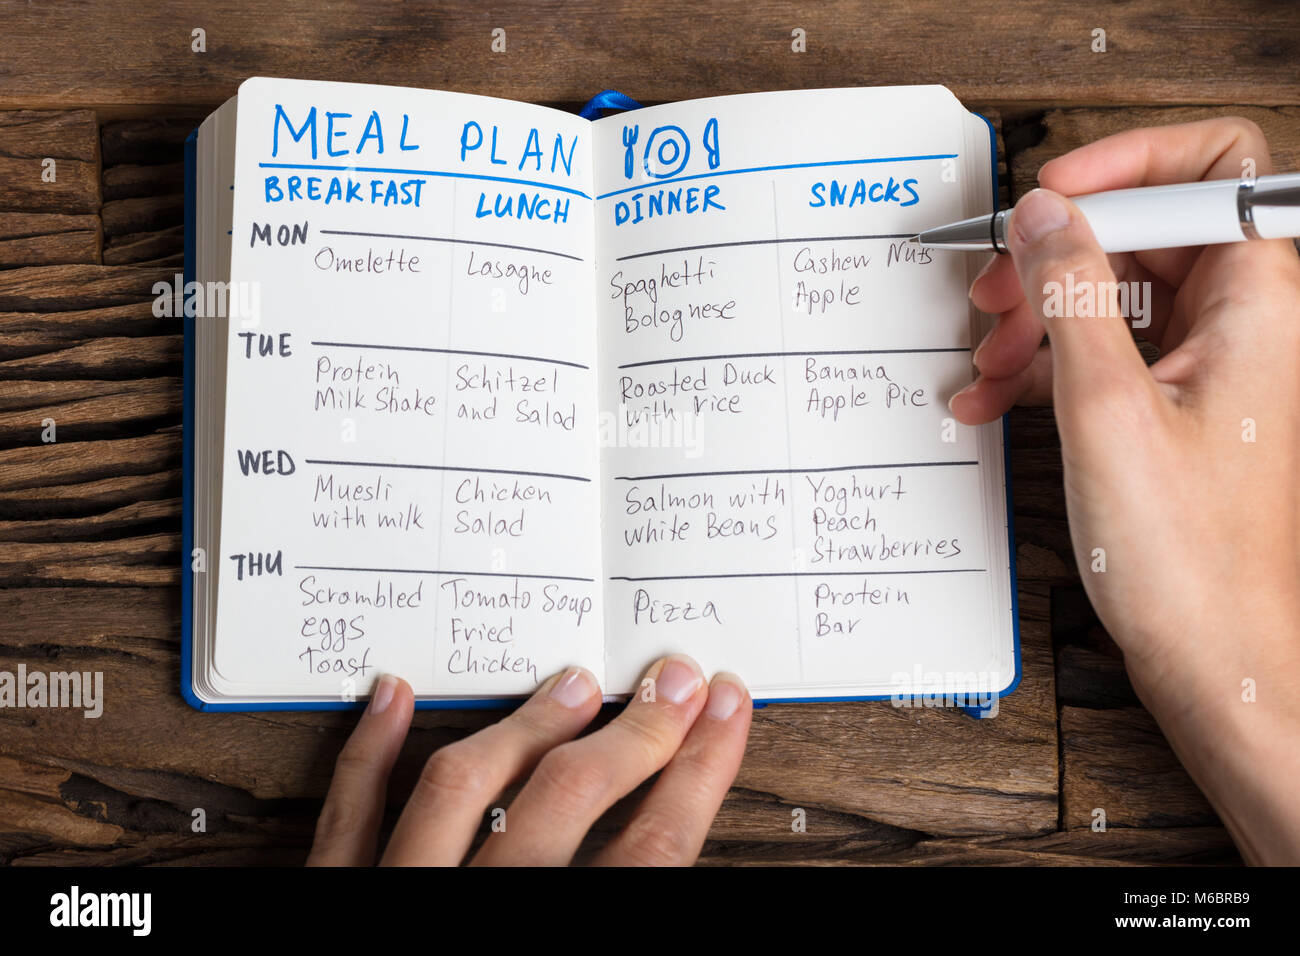 MEAL PLAN
BREAKFAST LUNCH DINNER SNACKS
MON
Omelette
Lasagne
Spaghetti
Bolognese
Cashew Nuts
Apple
TUE
Protein
Milk Shake
Schitzel
and Salad
Roasted Duck
with rice
Banana
Apple Pie
WED
Muesli
with milk
Chicken
Salad
Salmon with
white Beans
Yoghurt
Peach
Strawberries
THU
Scrambled
eggs
Toast
Tomato Soup
Fried
Chicken
Pizza
Protein
Bar
alamy
Image ID: M6BRB9
www.alamy.com